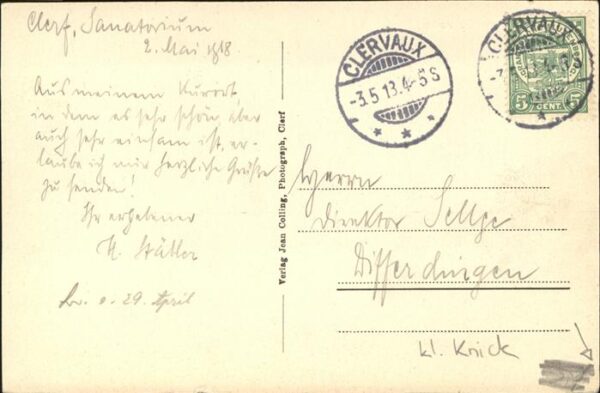 Clerf, Sanatorium
2. Mai 1918
Aus meinem Kurort,
in dem es sehr schön, aber
auch sehr einsam ist, er-
laube ich mir herzliche Grüße
zu senden!
Ihr ergebener
29. April
Verlag Jean Colling, Photograph, Clerf
CLERVAUX
-3.5 13.4-5 S
CLERVAUX
5 CENT. 5
Herrn
Direktor
Differdingen
kl. Knick